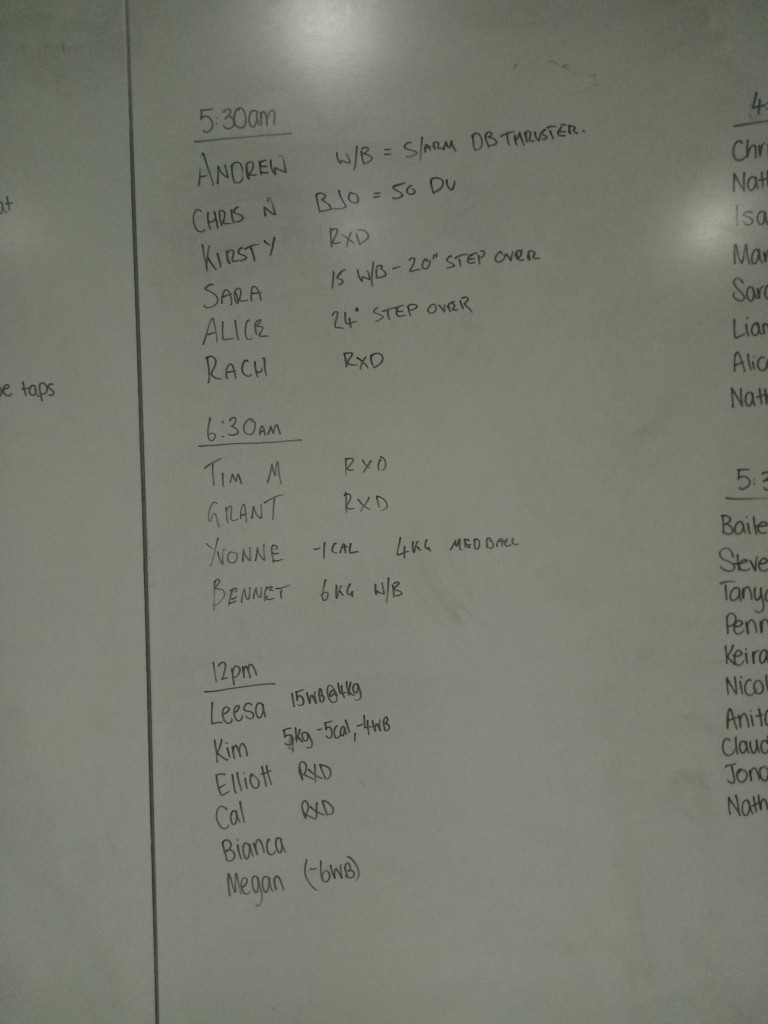 at
e taps
5:30am
ANDREW W/B = S/ARM DB THRUSTER.
CHRIS N BJO = 50 DU
KIRSTY RXD
SARA 15 W/B - 20" STEP OVER
ALICE 24" STEP OVER
RACH RXD
6:30AM
TIM M RXD
GRANT RXD
YVONNE -1CAL 4KG MEDBALL
BENNET 6KG W/B
12pm
Leesa 15WB@4kg
Kim 5kg -5cal, -4WB
Elliott RXD
Cal RXD
Bianca
Megan (-6WB)
4:
Chri
Nath
Isa
Mar
Sara
Liam
Alic
Nath
5:3
Baile
Steve
Tanya
Penn
Keira
Nicol
Anita
Claud
Jono
Nath